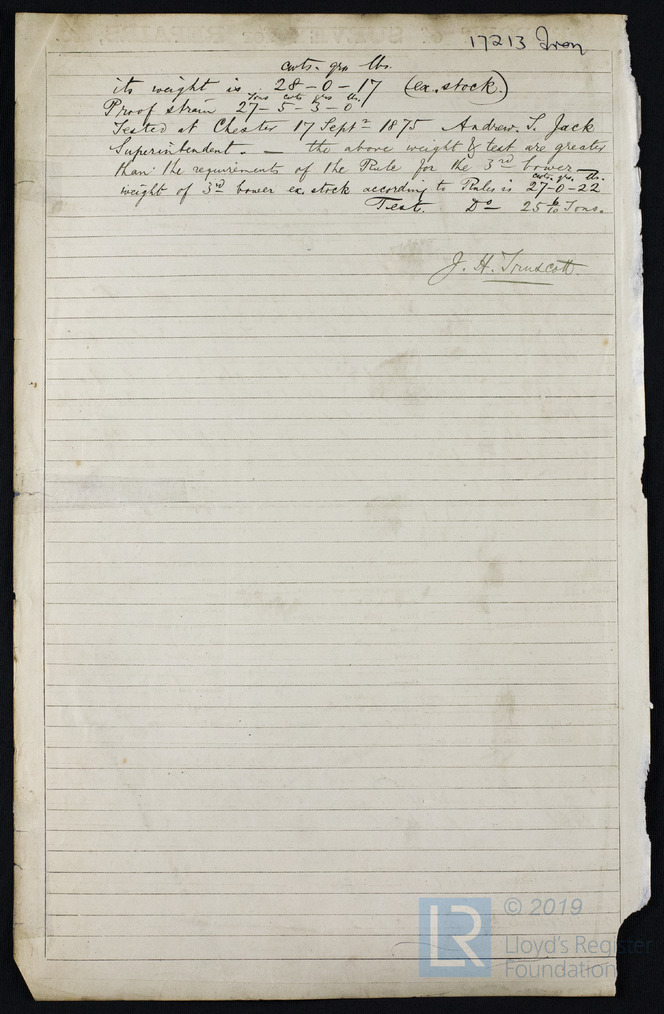 17213 Iron
cwts. qrs lbs.
its weight is 28-0-17 (ex. stock.)
Tons cwts qrs lbs.
Proof strain 27-5-3-0
Tested at Chester 17 Septr 1875 Andrew. T. Jack
Superintendent. — the above weight & test are greater
than the requirements of the Rule for the 3rd bower
cwts. qrs. lbs.
weight of 3rd bower ex stock according to Rules is 27-0-22
Test. Do 25 6/10 Tons.
J. H. Truscott.
© 2019
LR
Lloyd's Register
Foundation